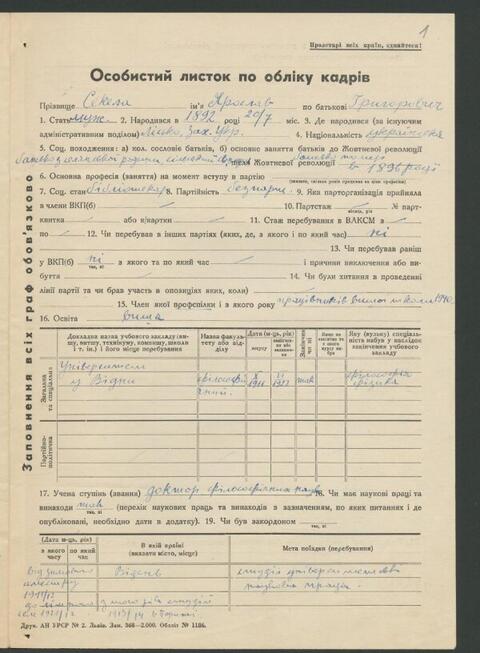 1
Пролетарі всіх країн, єднайтеся!
Особистий листок по обліку кадрів
Прізвище Секела ім'я Ярослав по батькові Григорович
1. Стать муж. 2. Народився в 1892 році 20/7 міс. 3. Де народився (за існуючим
адміністративним поділом) Лісько, Зах. Укр. 4. Національність українська
5. Соц. походження: а) кол. сословіє батьків, б) основне заняття батьків до Жовтневої революції
після Жовтневої революції в 1896 році
6. Основна професія (заняття) на момент вступу в партію
7. Соц. стан бібліотекар 8. Партійність безпарт. 9. Яка парторганізація прийняла
в члени ВКП(б) — 10. Партстаж — № парт-
місяць, рік
квитка — або к/картки — 11. Стаж перебування в ВЛКСМ з —
по — 12. Чи перебував в інших партіях (яких, де, з якого і по який час) ні
13. Чи перебував раніш
у ВКП(б) ні з якого та по який час — і причини виключення або ви-
так, ні
буття — 14. Чи були хитання в проведенні
лінії партії та чи брав участь в опозиціях яких, коли) —
15. Член якої профспілки і з якого року працівників вищої школи 1940
16. Освіта вища
Докладна назва учбового закладу (ви-
шу, втишу, технікуму, комвишу, школи
і т. ін.) і його місце перебування
Назва факуль-
тету або від-
ділу
Дата (м-ць, рік)
вступу
Закінчив
чи ні
Яку (вузьку) спеціаль-
ність набув у наслідок
закінчення учбового
закладу
Загальна
та спеціальна
Університет
у Відни
філософі
чний.
X
1911
VI
1922
так
філософія
фізика
Партійно-
політична
17. Учена ступінь (звання) доктор філософічних наук 18. Чи має наукові праці та
винаходи так (перелік наукових праць та винаходів з зазначенням, по яких питаннях і де
так, ні
опубліковані, необхідно дати в додатку). 19. Чи був закордоном
так, ні
Дата (м-ць, рік)
з якого
часу
по який
час
В якій країні
(вказати місто, місце)
Мета поїздки (перебування)
від зимового
семестру
1911/12
Відень
студії університетські
наукова праця.
до літнього
сем 1921/22
з того два студії
1913/14
Заповнення всіх граф обов'язково
Друк. АН УРСР № 2. Львів. Зам. 368—2.000. Обліт № 1186.